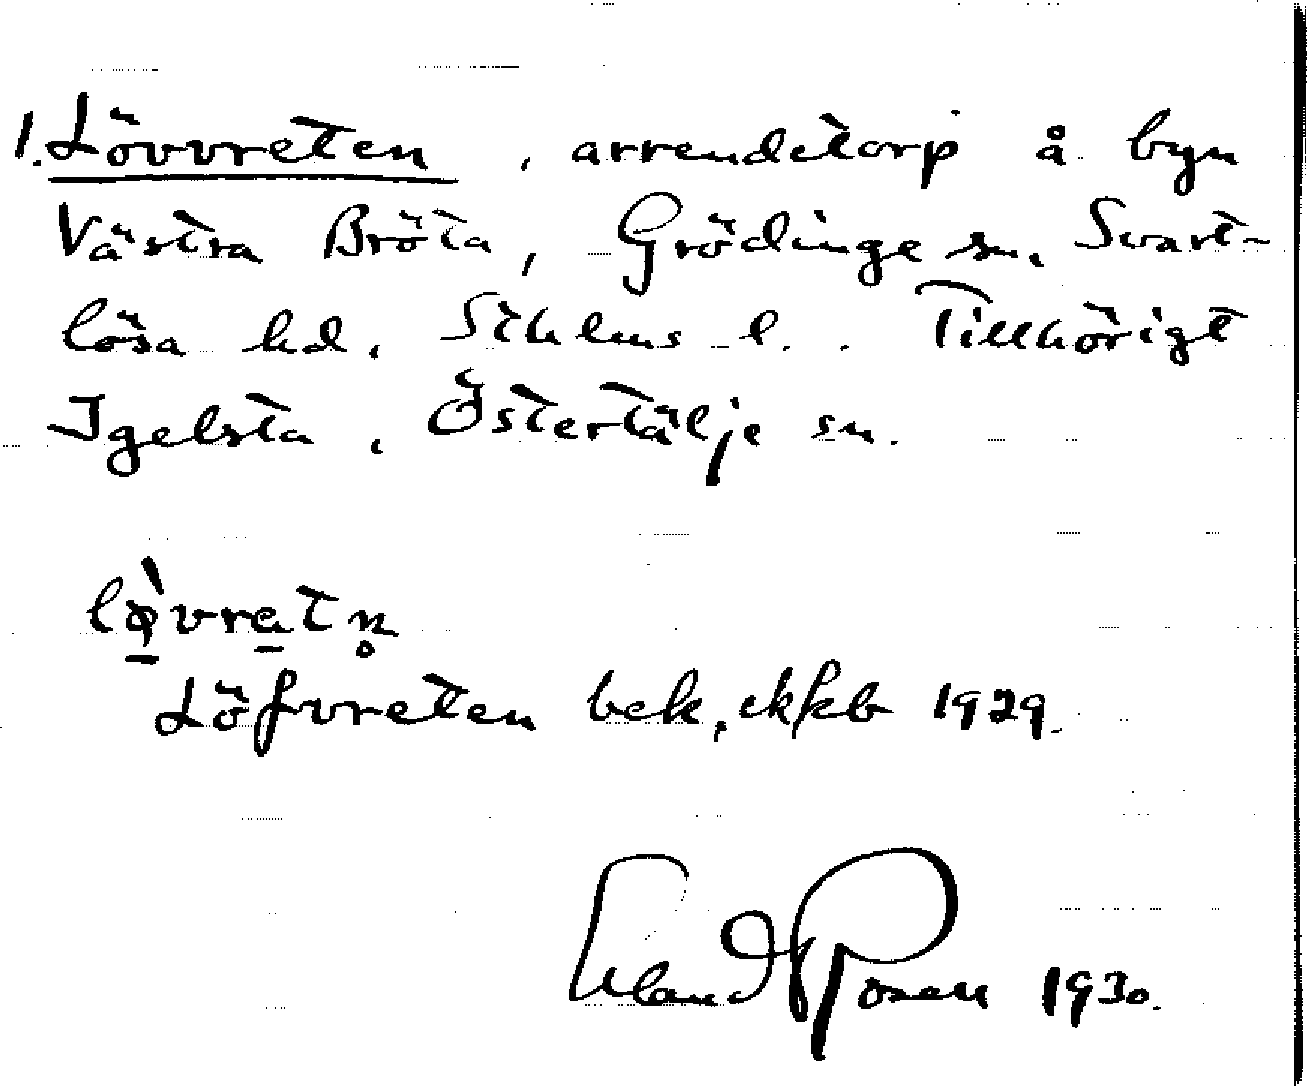 1. Lövvreten, arrendetorp å byn
Västra Bröta, Grödinge sn, Svart-
lösa hd, Sthlms l. Tillhörigt
Igelsta, Östertälje sn.
lø̠̀vre̠tn̥
Löfvreten bek, ekkb 1929.
Erland Rosen 1930.